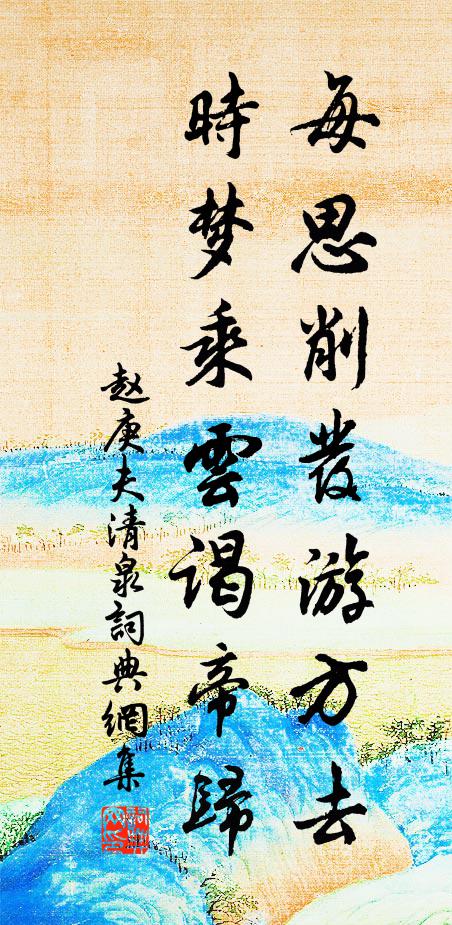 每思削發游方去
時梦乘雲谒帝歸
赵庚夫清泉詞典網集